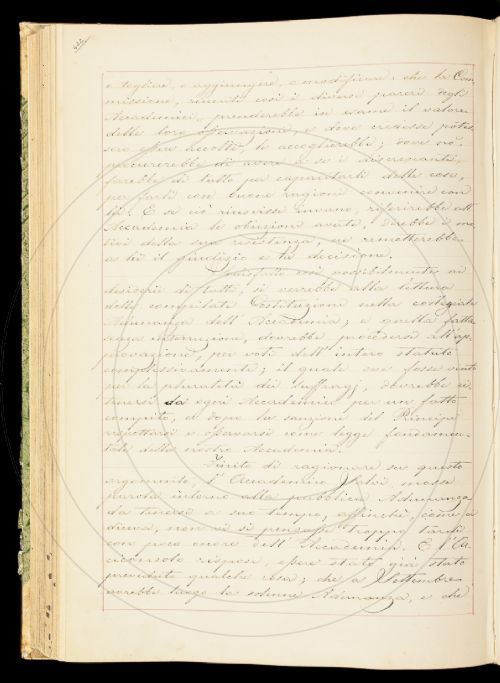 o togliere, o aggiungere, o modificare: che la Com
missione, ricevuti così i diversi pareri degli
Accademici, prenderebbe in esame il valore
delle loro osservazioni, e dove credesse potes
sero essere accolte, le accoglierebbe; dove no,
procurerebbe di avere a se i discrepanti,
farebbe di tutto per capacitarli della cosa,
per farli con buone ragioni convenire con
lei. E se ciò riuscisse invano, riferirebbe all'
Accademia le obiezioni avute, darebbe i mo
tivi della sua resistenza, ne rimetterebbe
a lei il giudizio e la decisione.
Soddisfatti così possibilmente ai
desiderii di tutti, si verrebbe alla lettura
delle compilate Costituzioni nella collegiale
Adunanza dell'Accademia; e quella fatta
senza interruzione, dovrebbe procedersi all'ap
provazione, per voti dell'intero statuto
complessivamente; il quale ove fosse vinto
per la pluralità dei suffragj, dovrebbe ri
tenersi da ogni Accademico per un fatto
compiuto, e dopo la sanzione del Principe
rispettarsi e osservarsi come legge fondamen
tale della nostra Accademia.
Finito di ragionare su questo
argomento, l'Accademico mosse
parola intorno alla pubblica Adunanza
da tenersi a suo tempo, affinchè, come ei
diceva, non vi si pensasse troppo tardi
con poco onore dell'Accademia. E l'Ar
ciconsolo rispose, essere stato già stato
preveduto qualche cosa; che a Settembre
avrebbe luogo la solenne Adunanza, e che